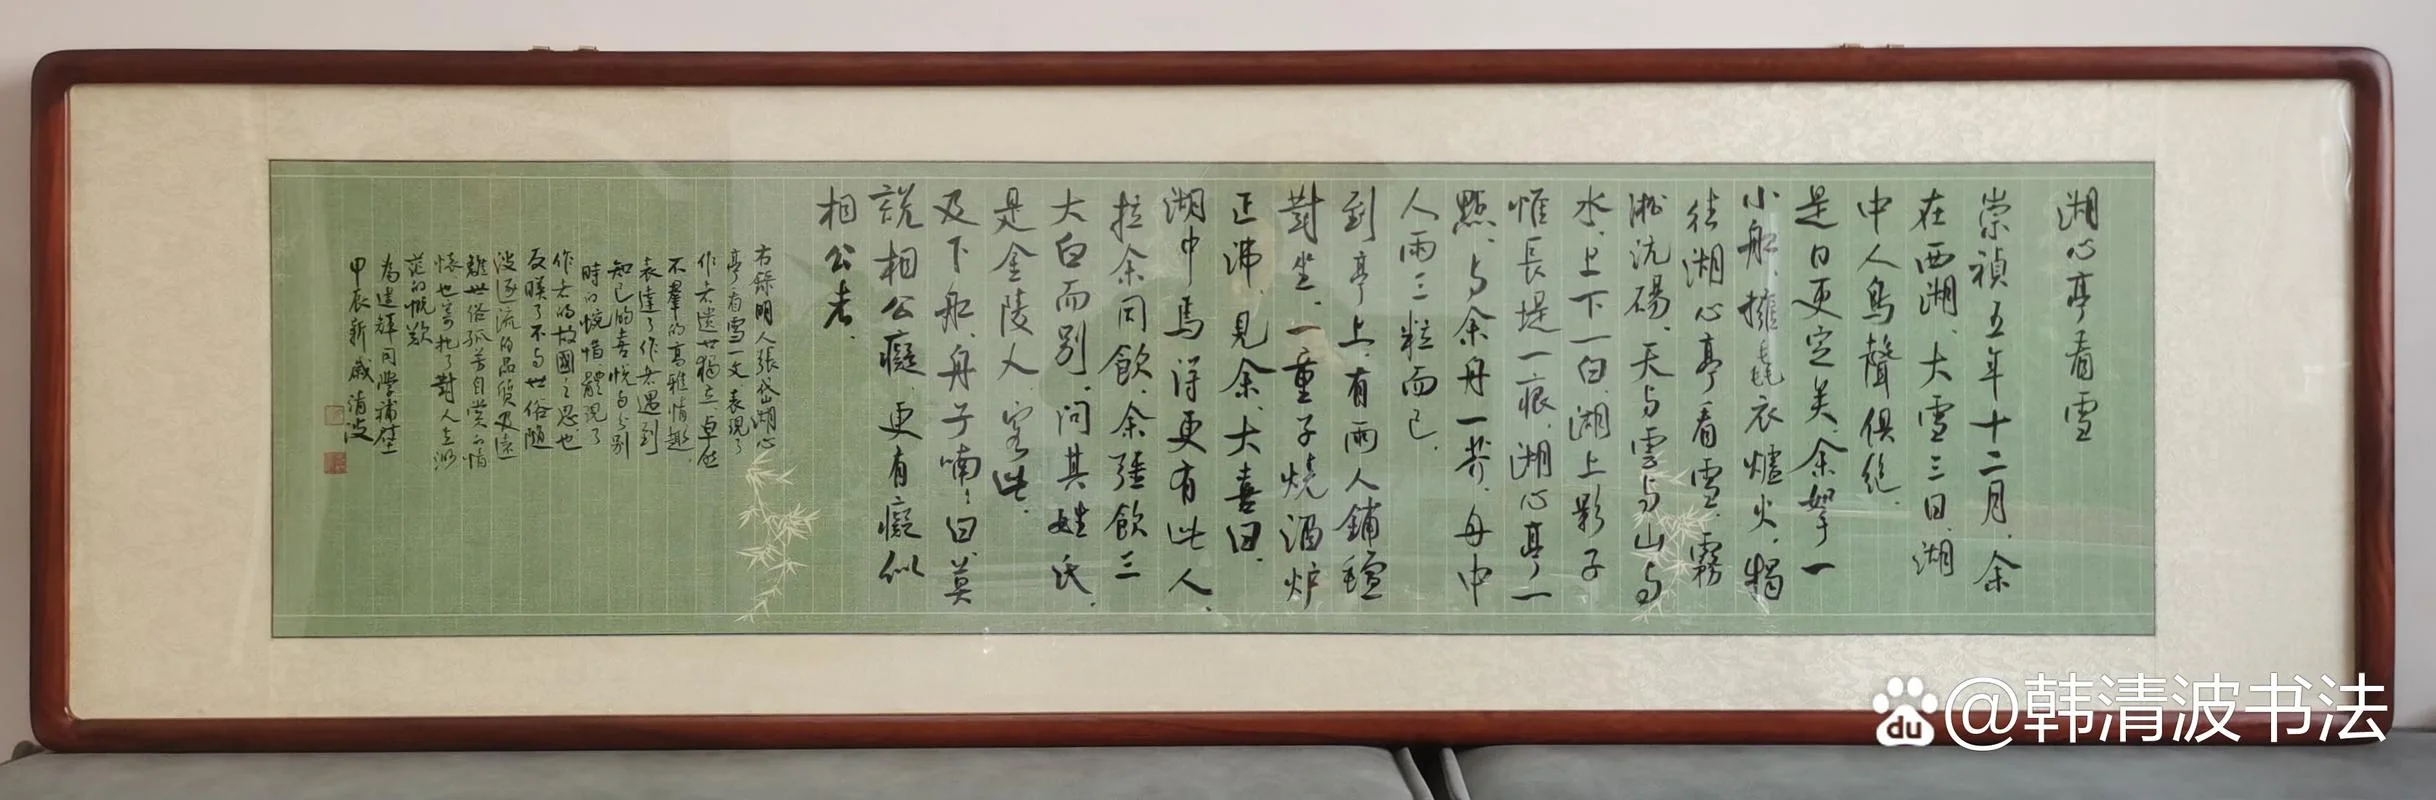 湖心亭看雪
崇禎五年十二月、余
在西湖、大雪三日、湖
中人鳥聲俱絶、
是日更定矣、余拏一
小船、擁毳衣爐火、獨
往湖心亭看雪、霧
淞沆碭、天与雲与山与
水、上下一白、湖上影子
惟長堤一痕、湖心亭一
點、与余舟一芥、舟中
人兩三粒而已、
到亭上、有兩人鋪氈
對坐、一童子燒酒炉
正沸、見余、大喜曰、
湖中焉得更有此人、
拉余同飲、余强飲三
大白而别、問其姓氏、
是金陵人、客此、
及下船、舟子喃〻曰、莫
説相公癡、更有癡似
相公者、
右録明人張岱湖心
亭看雪一文、表現了
作者遺世獨立、卓然
不羣的高雅情趣、
表達了作者遇到
知己的喜悦与分别
時的惋惜、體現了
作者的故國之思、也
反映了不与世俗隨
波逐流的品質及遠
離世俗孤芳自賞的情
懷也寄托了對人生渺
茫的慨歎
為遠輝同學補壁
甲辰新歲清波
du@韩清波书法